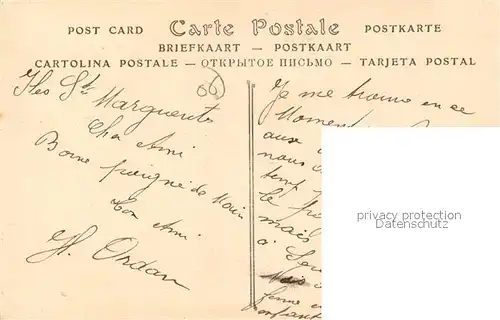 POST CARD Carte Postale POSTKARTE
BRIEFKAART — POSTKAART
CARTOLINA POSTALE — ОТКРЫТОЕ ПИСЬМО — TARJETA POSTAL
06
Iles Ste
Marguerite
Cher Ami
Bonne poignée de Main
Ton Ami
H. Ordan
Je me trouve en ce
Moment
aux
nous
temp
le
mais
à
Mais
femme
enfant
privacy protection
Datenschutz